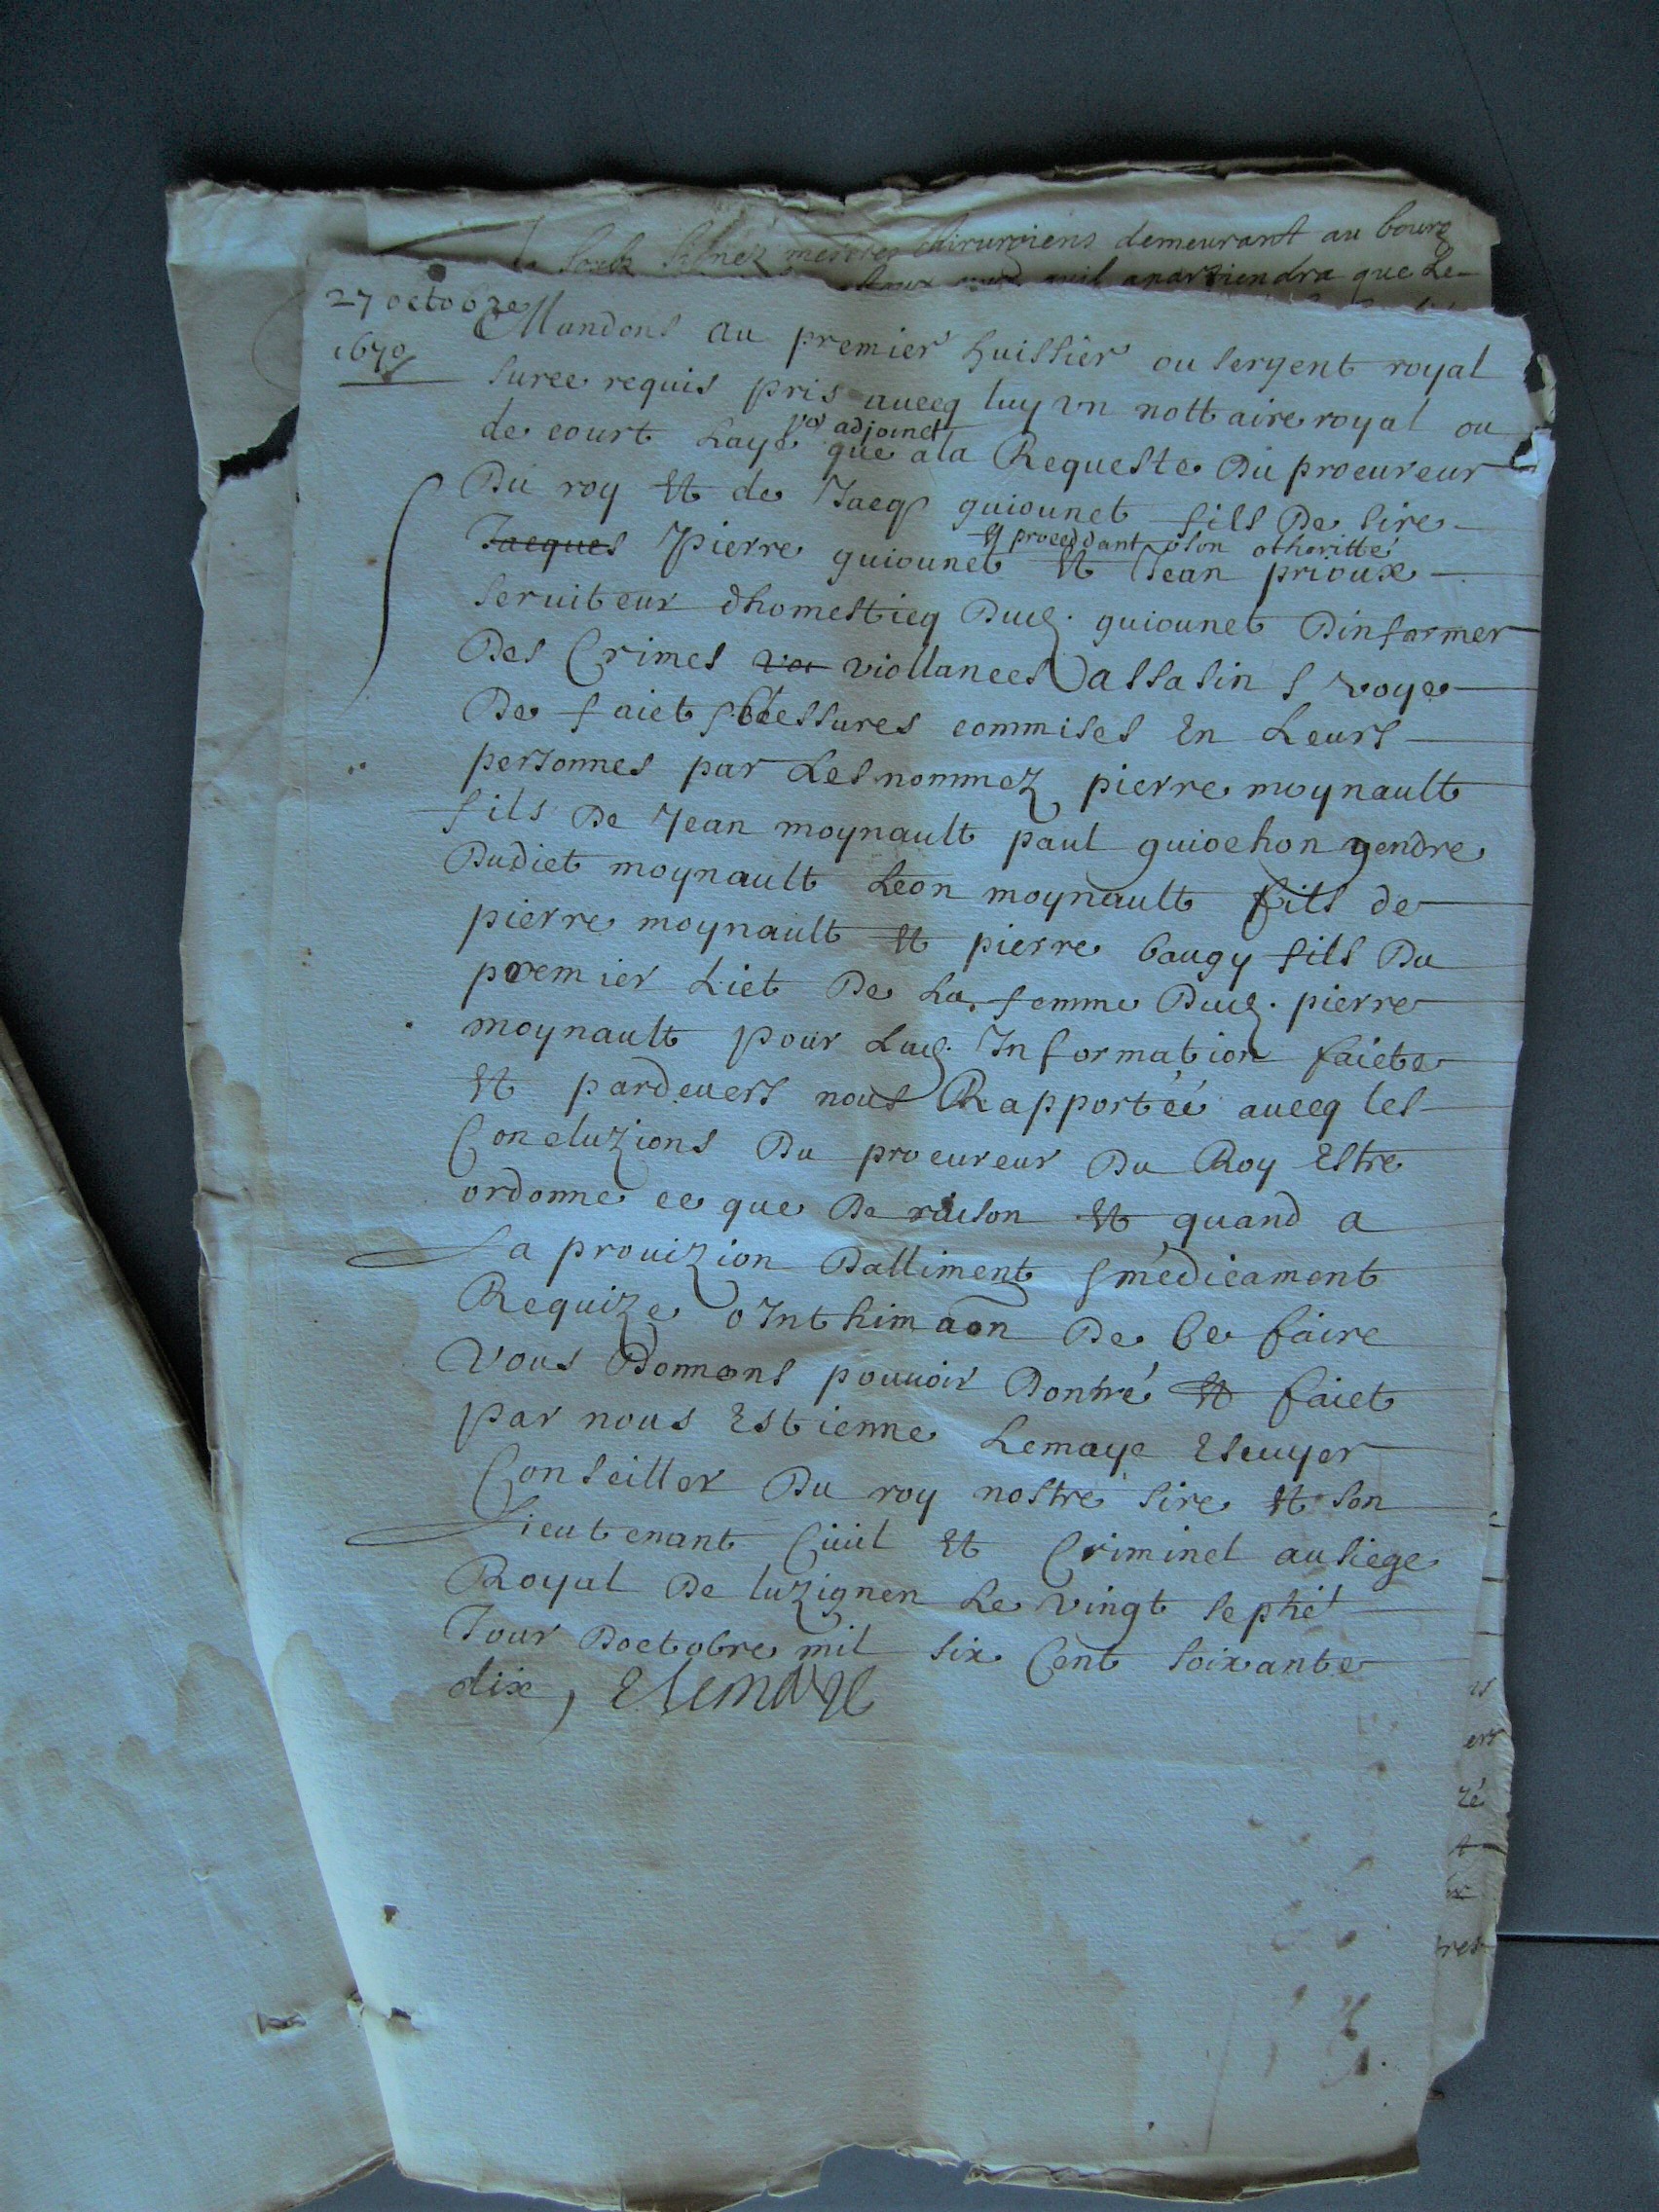 Soubz Signéz mestres chirurgiens demeurant au bourg
quil apartiendra que Le
27 octobre
1670
Mandons au premier huissier ou sergent royal
suree requis pris auecq luy un nottaire royal ou
de court Laye po adjoinct que ala Requeste Du procureur
Du roy Et de Jacqs guiounet fils De sire
Jacques Pierre guiounet Et proceddant o son othoritté Et Jean prioux
seruiteur dhomesticq Dud. guiounet Dinformer
Des Crimes vio viollances assasin s voye
De faict blessures commises En Leurs
personnes par Les nommez pierre moynault
fils De Jean moynault paul guiochon gendre
Dudict moynault Leon moynault fils de
pierre moynault Et pierre baugy fils Du
premier Lict De La femme Dud. pierre
moynault pour Lad. Information faicte
Et pardeuers nous Rapportéé auecq les
Concluzions Du procureur Du Roy Estre
ordonné ce que De raison Et quand a
La prouizion Dalliment s médicament
Requize o Inthimaon De Ce faire
Vous Donnons pouuoir Donné Et faict
Par nous Estienne Lemaye Escuyer
Conseiller Du roy nostre sire Et son
Lieutenant Ciuil Et Criminel au siege
Royal De luzignen Le vingt septié
Jour Doctobre mil six Cent soixante
dix, ELemaye
ers
zé
tres